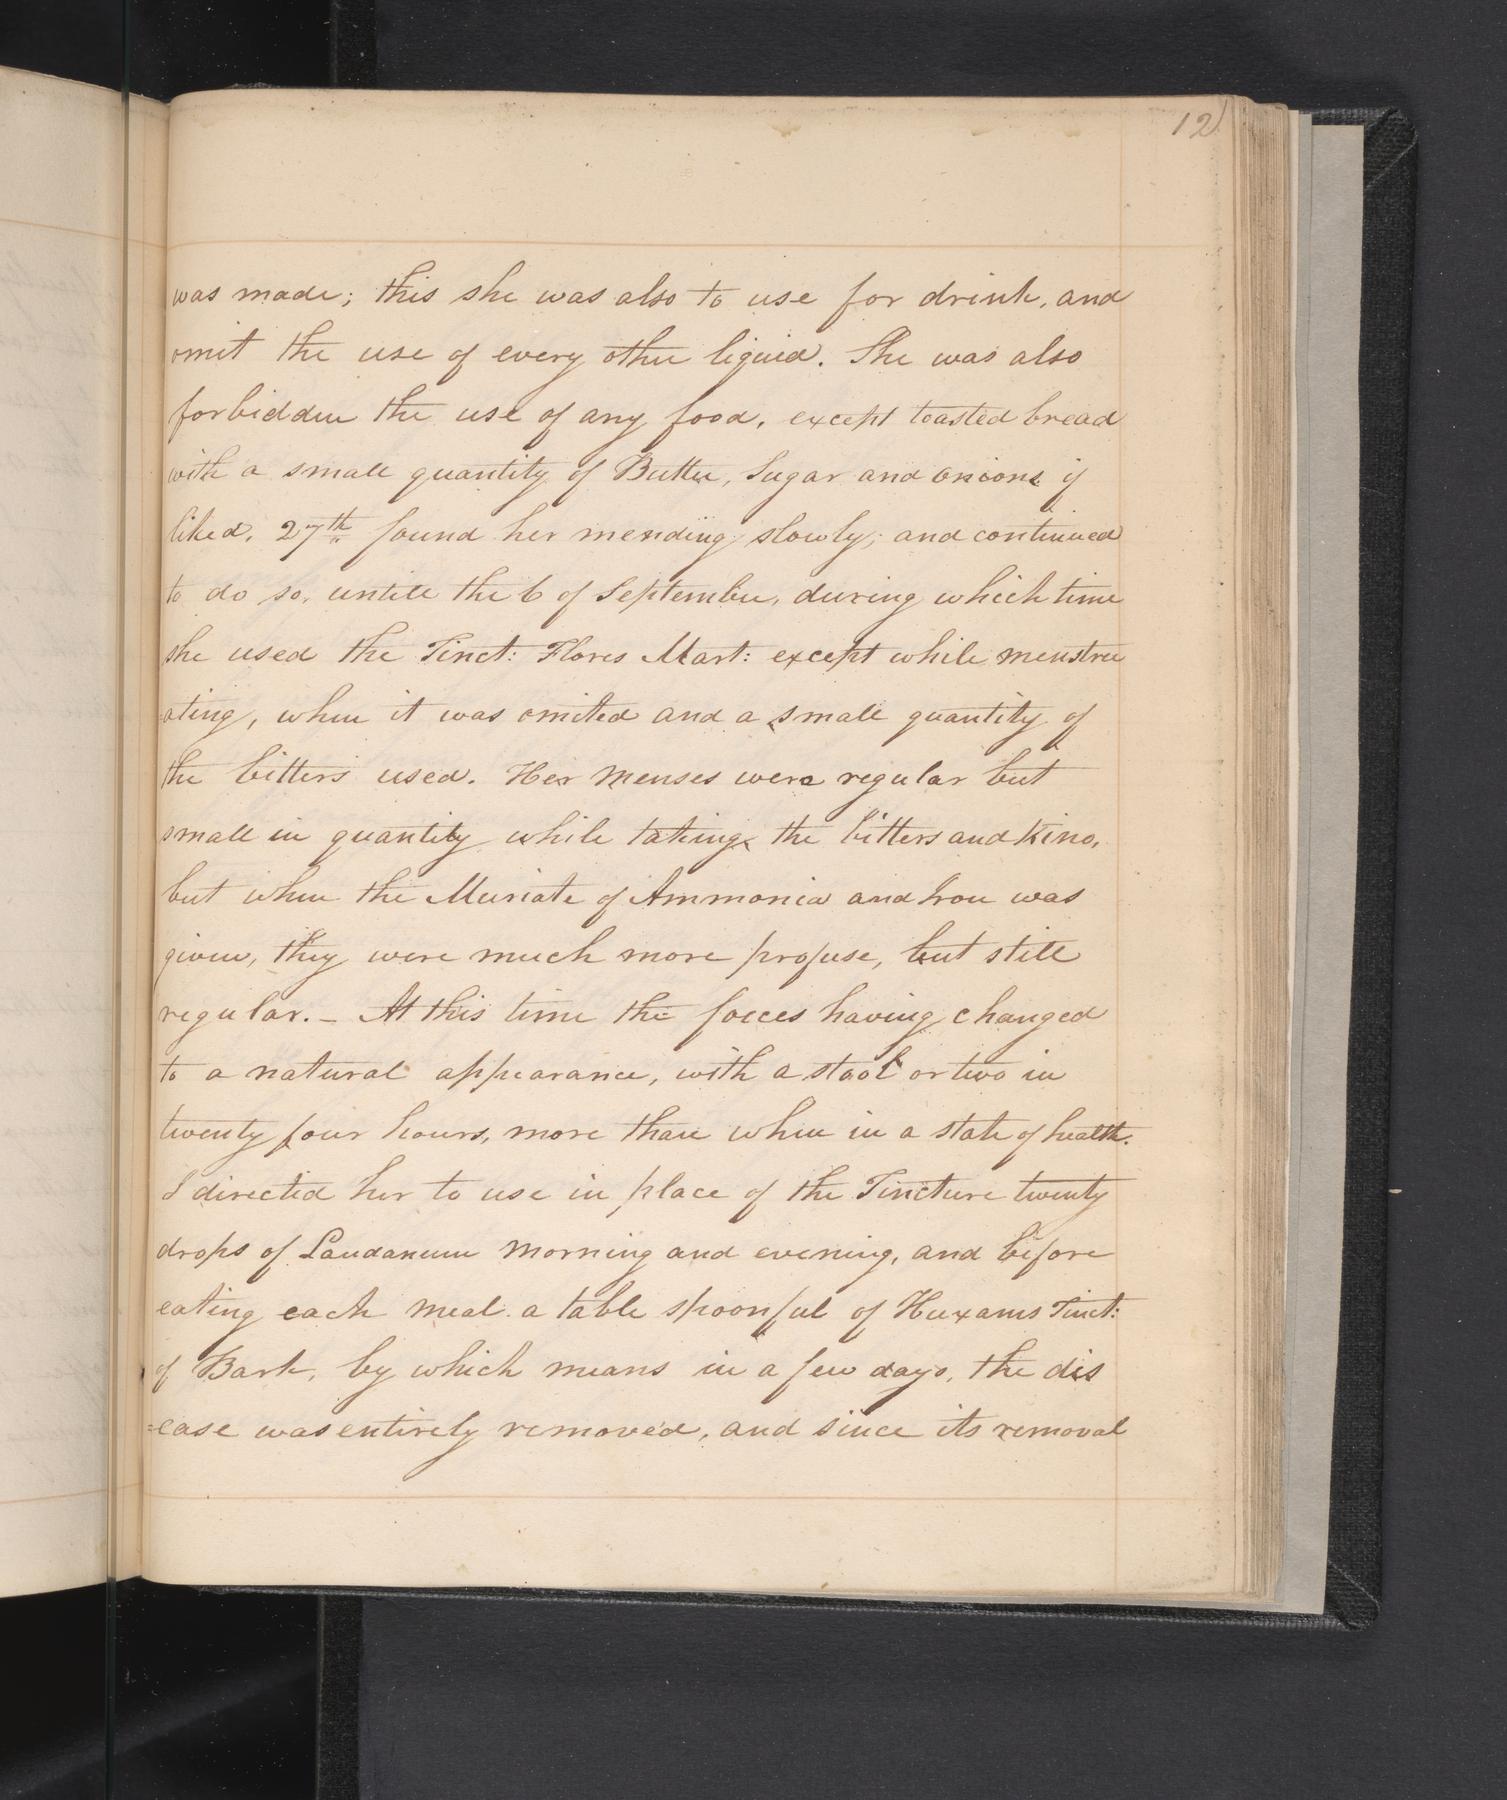 12
was made; this she was also to use for drink, and
omit the use of every other liquid. She was also
forbidden the use of any food, except toasted bread
with a small quantity of Butter, Sugar and onions if
liked. 27th found her mending slowly; and continued
to do so, untill the 6 of September, during which time
she used the Tinct: Flores Mart: except while menstru
=ating, when it was omited and a small quantity of
the bitters used. Her menses were regular but
small in quantity while taking the bitters and Kino,
but when the Muriate of Ammonia and Iron was
given, they were much more profuse, but still
regular. – At this time the foeces having changed
to a natural appearance, with a stool or two in
twenty four hours, more than when in a state of health.
I directed her to use in place of the Tincture twenty
drops of Laudanum morning and evening, and before
eating each meal a table spoonful of Huxams Tinct:
of Bark, by which means in a few days, the dis
=ease was entirely removed, and since its removal